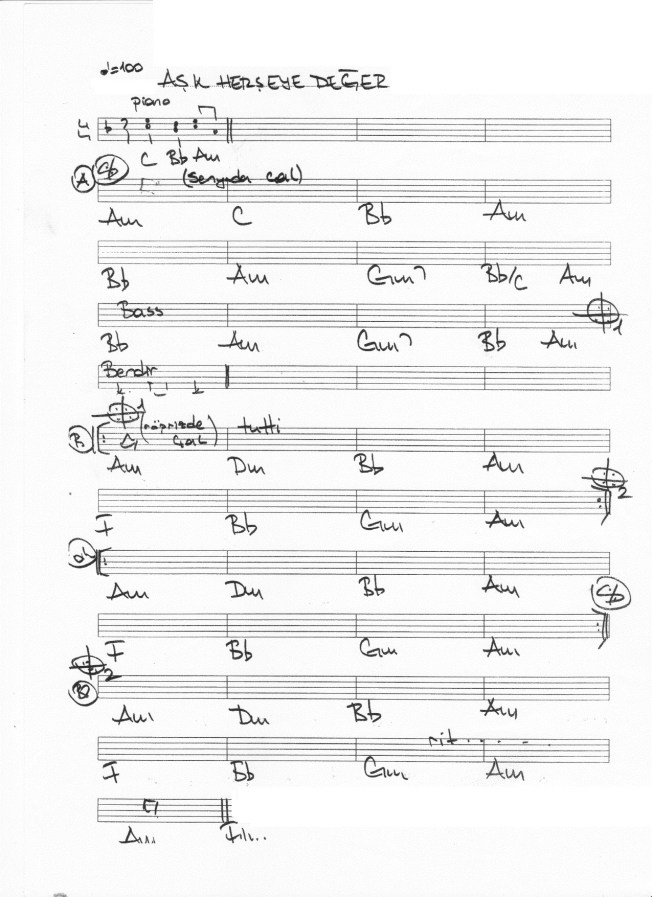 ♩=100
AŞK HERŞEYE DEĞER
piano
C Bb Am
A
(senyoda çal)
Am C Bb Am
Bb Am Gm7 Bb/C Am
Bass
1
Bb Am Gm7 Bb Am
Bendir
1
B (röprizde çal) tutti
Am Dm Bb Am
2
F Bb Gm Am
Am Dm Bb Am
F Bb Gm Am
2
B2
Am Dm Bb Am
rit.......
F Bb Gm Am
Am Fin..